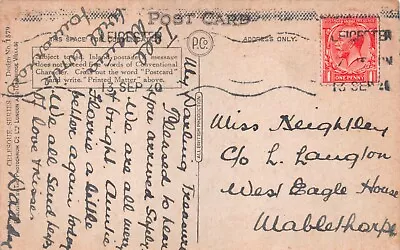 POST CARD
THIS SPACE
ADDRESS ONLY.
LEICESTER
13 SEP 20
LEICESTER
13 SEP 20
ONE PENNY
P.C.
Subject to the Inland postage, message
does not exceed five words of Conventional
Character. Cross out the word "Postcard"
and write "Printed Matter" above.
ALL BRITISH PRODUCTION
CELESQUE SERIES
My Darling Treasure
Pleased to hear
you arrived safe.
We are all very
bright. Auntie
Florrie a little
better again today
We all send heaps
of love & kisses.
Daddy
Tell
Miss Keightley
C/o L. Langton
West Eagle House
Mablethorpe